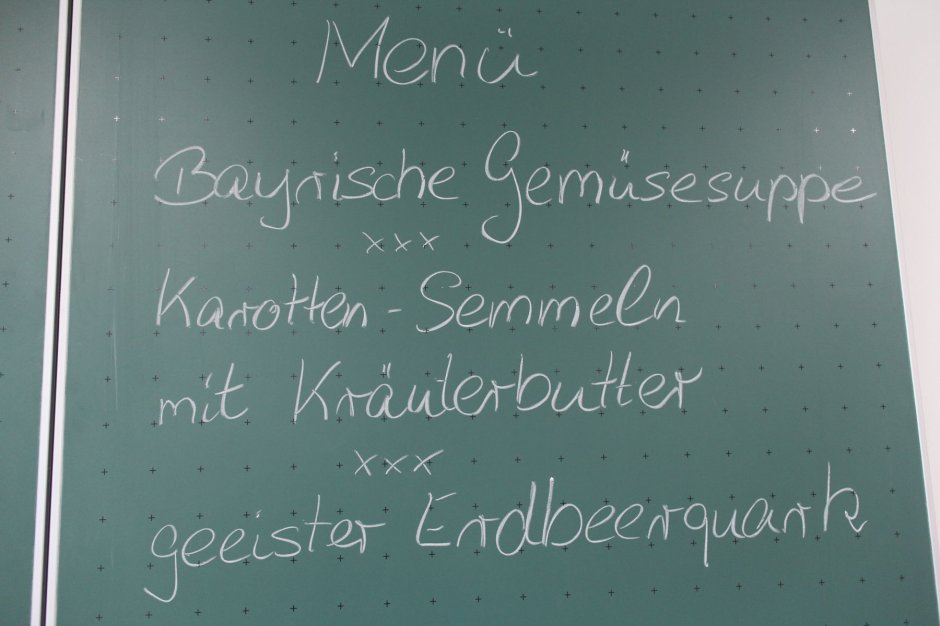 Menü
Bayrische Gemüsesuppe
xxx
Karotten-Semmeln
mit Kräuterbutter
xxx
geeister Erdbeerquark